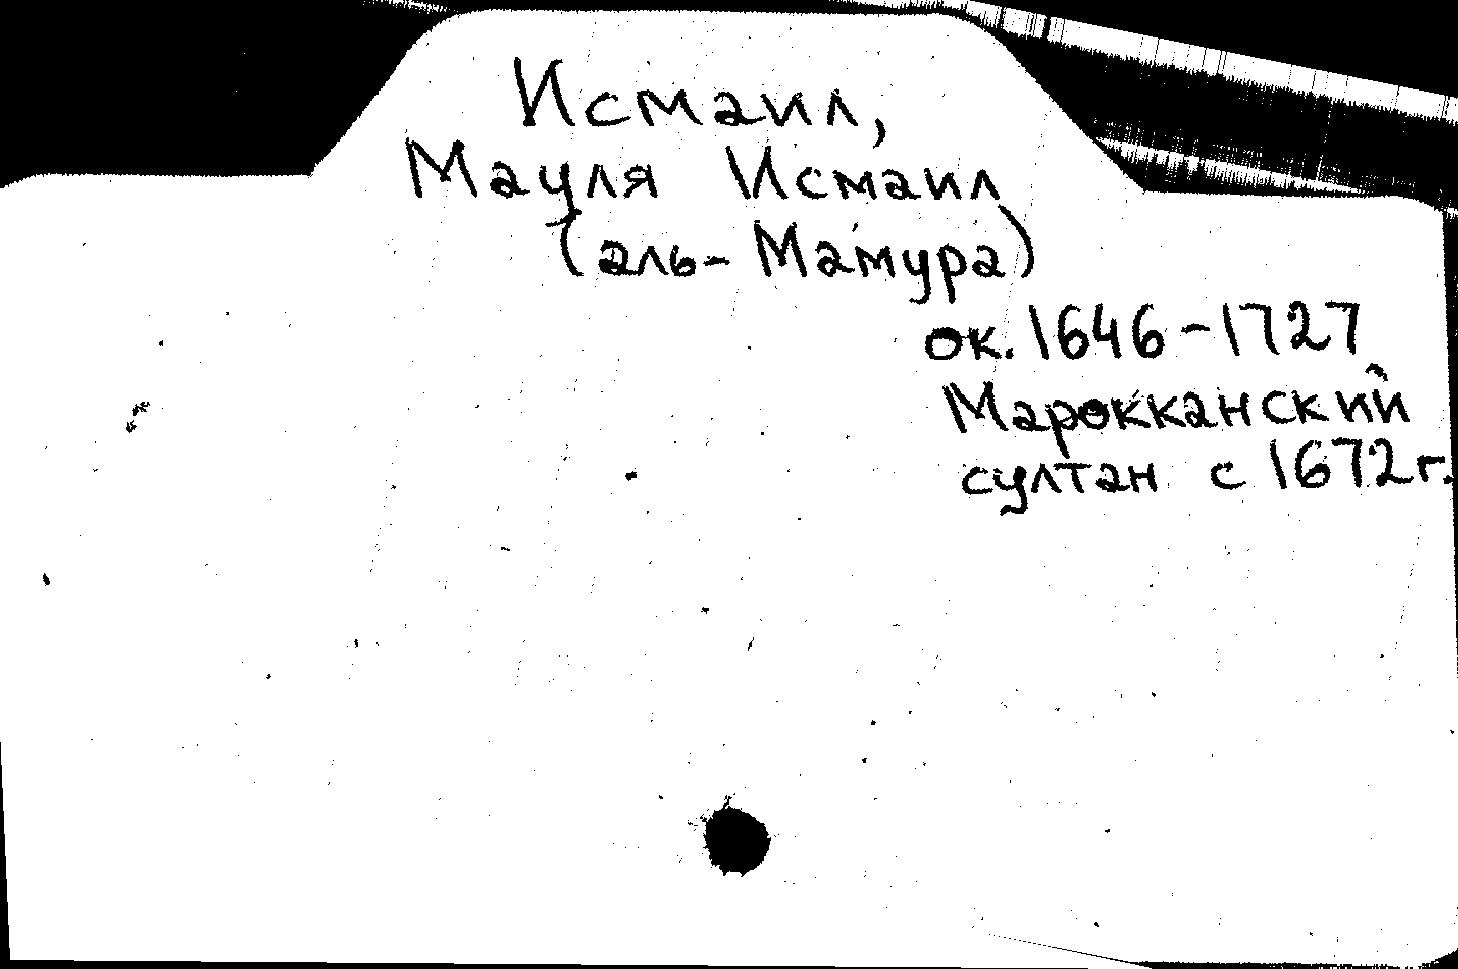 Исмаил,
Мауля Исмаил
(аль-Мамура)
ок. 1646-1727
Марокканский
султан с 1672г.